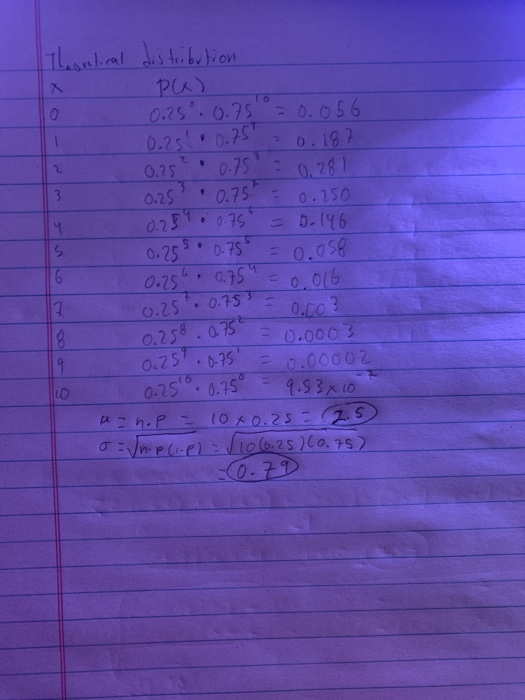 Theoretical distribution
x P(x)
0 0.25⁰ · 0.75¹⁰ = 0.056
1 0.25¹ · 0.75⁹ = 0.187
2 0.25² · 0.75⁸ = 0.281
3 0.25³ · 0.75⁷ = 0.250
4 0.25⁴ · 0.75⁶ = 0.146
5 0.25⁵ · 0.75⁵ = 0.058
6 0.25⁶ · 0.75⁴ = 0.016
7 0.25⁷ · 0.75³ = 0.003
8 0.25⁸ · 0.75² = 0.0003
9 0.25⁹ · 0.75¹ = 0.00002
10 0.25¹⁰ · 0.75⁰ = 9.53×10⁻⁷
μ = n.p = 10 × 0.25 = 2.5
σ = √n·p(1-p) = √10(0.25)(0.75)
= 0.79